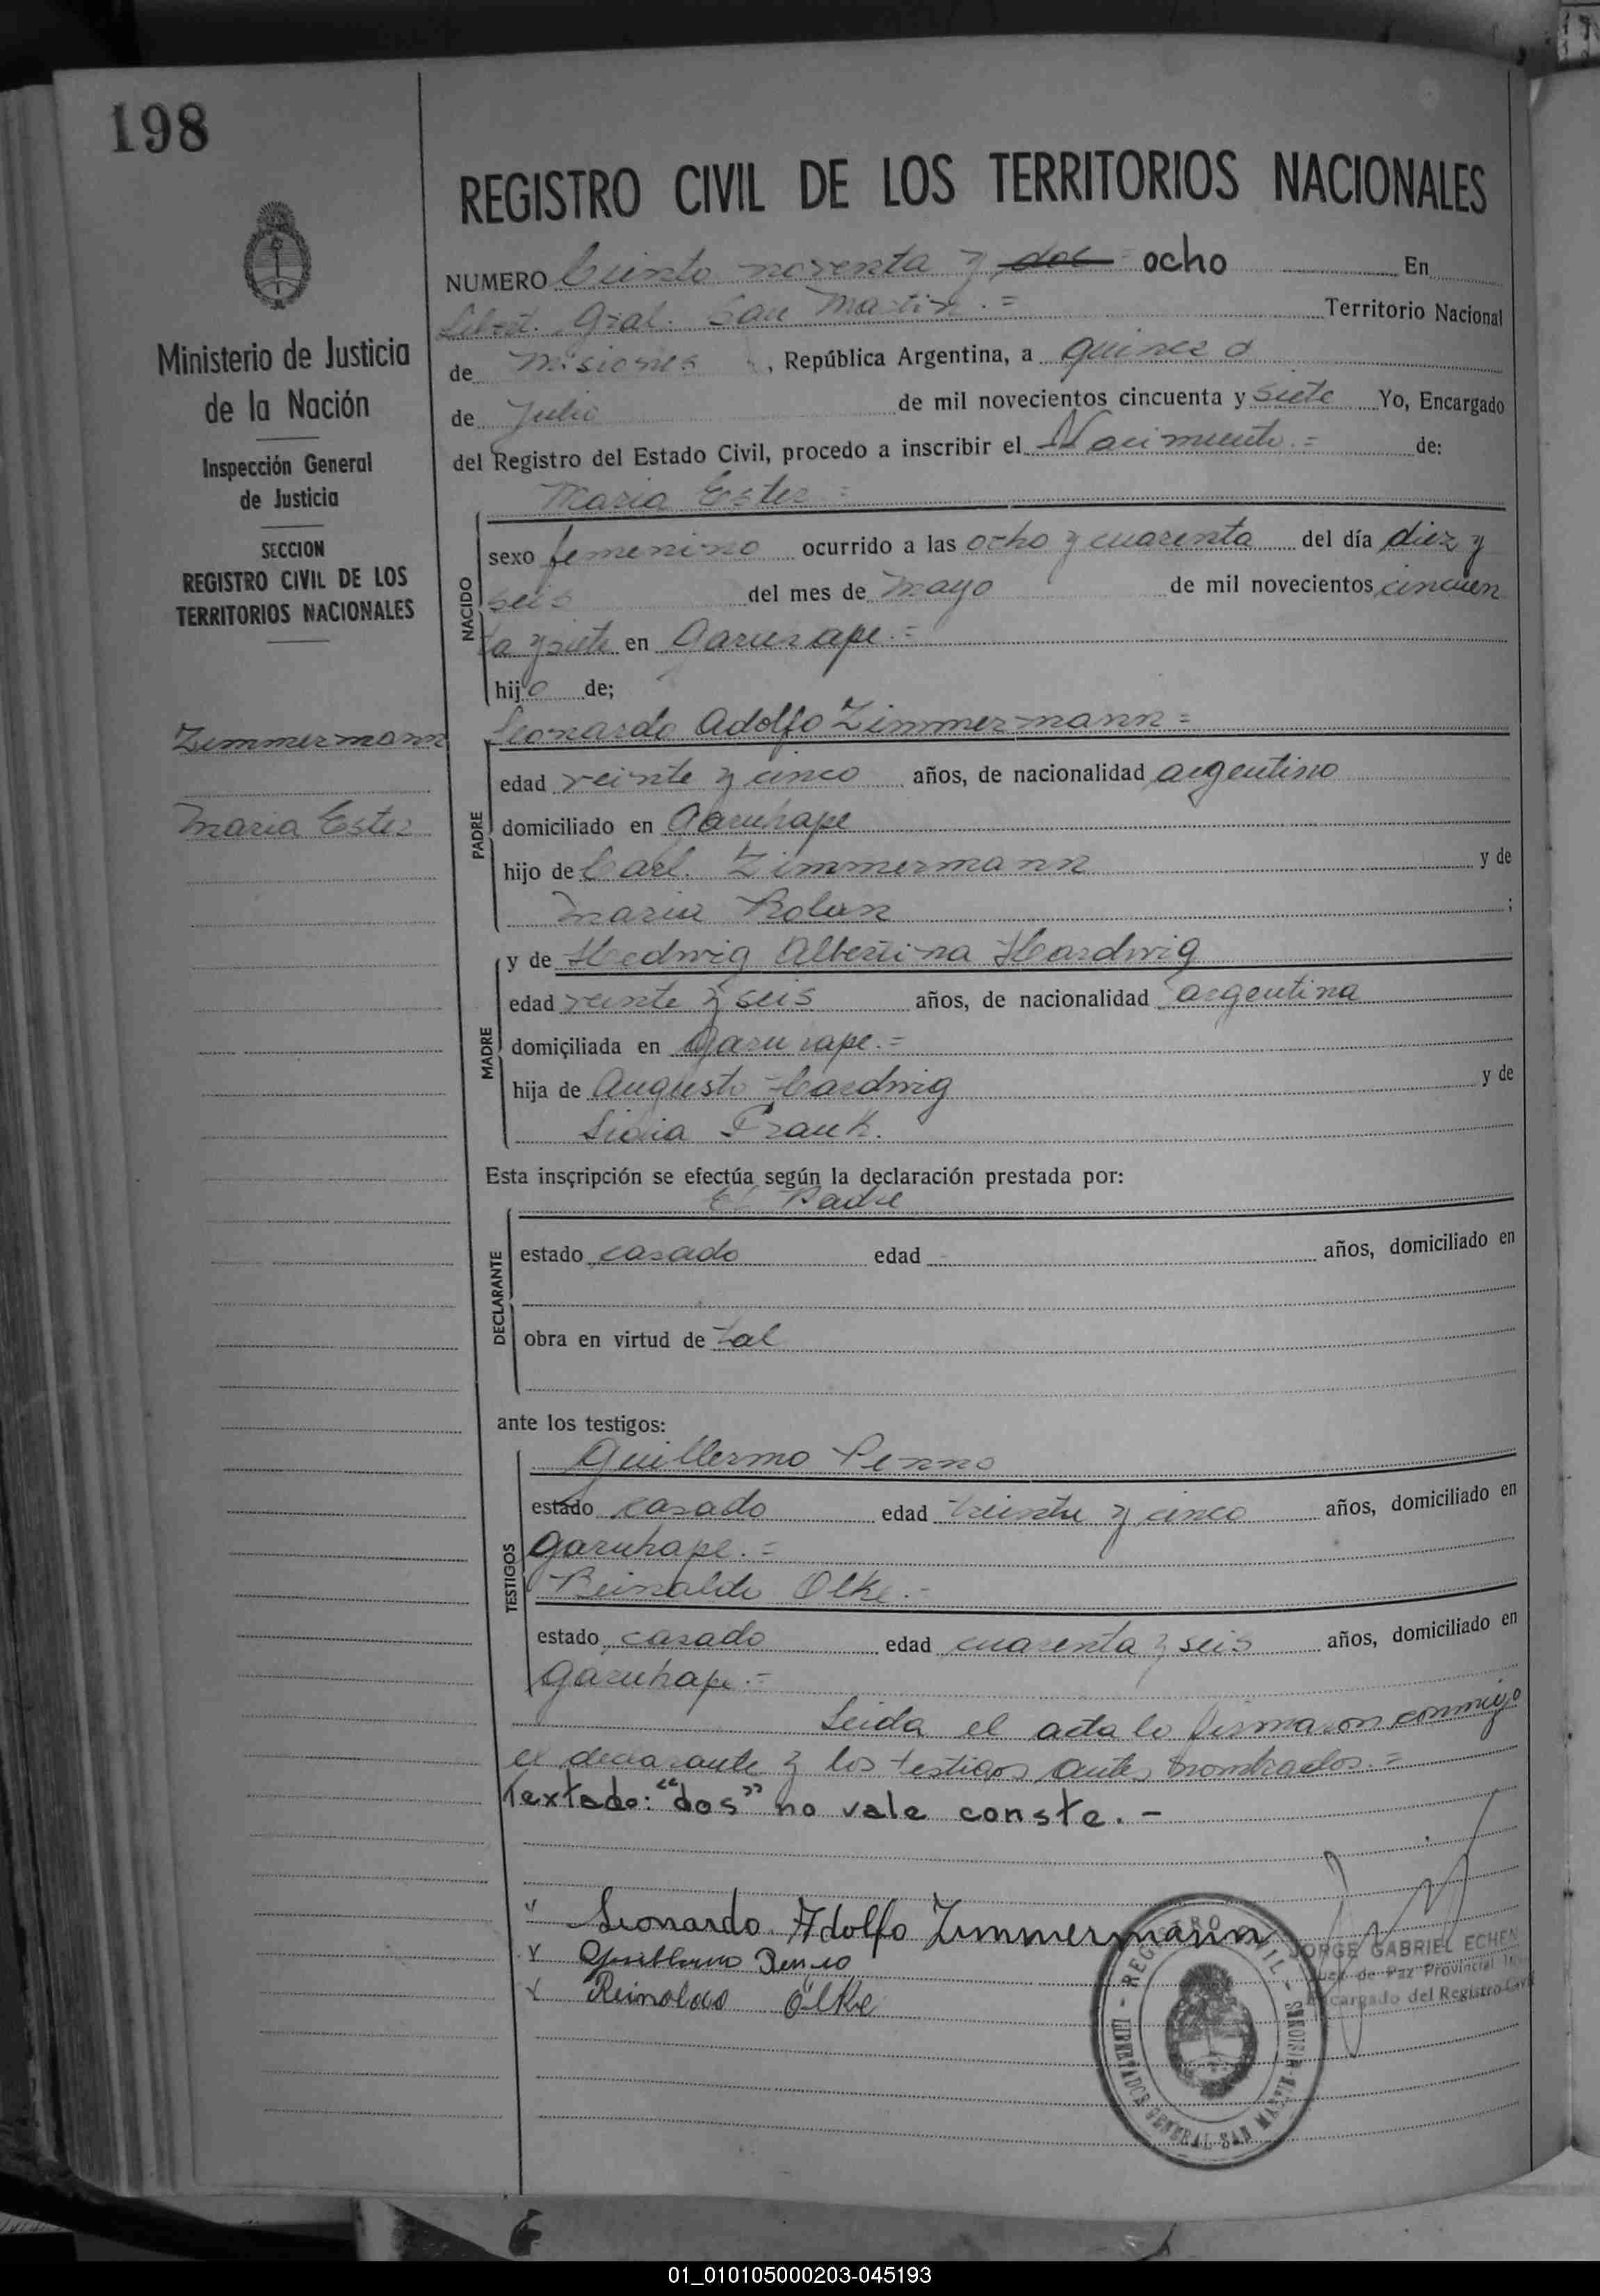 198
REGISTRO CIVIL DE LOS TERRITORIOS NACIONALES
NUMERO Ciento noventa y dos = ocho En
Libert. Gral. San Martin. = Territorio Nacional
de Misiones, República Argentina, a quince d
de Julio de mil novecientos cincuenta y siete Yo, Encargado
del Registro del Estado Civil, procedo a inscribir el Nacimiento. = de:
Maria Ester =
NACIDO
sexo femenino ocurrido a las ocho y cuarenta del día diez y
seis del mes de Mayo de mil novecientos cincuen
ta y siete en Garuhape. =
hij a de;
Ministerio de Justicia
de la Nación
Inspección General
de Justicia
SECCION
REGISTRO CIVIL DE LOS
TERRITORIOS NACIONALES
Zimmermann
Maria Ester
Leonardo Adolfo Zimmermann =
PADRE
edad veinte y cinco años, de nacionalidad argentino
domiciliado en Garuhape
hijo de Carl. Zimmermann y de
Maria Rolan ;
MADRE
y de Hedwig Albertina Hardwig
edad veinte y seis años, de nacionalidad argentina
domiciliada en Garuhape. =
hija de Augusto Hardwig y de
Lidia Frank.
Esta inscripción se efectúa según la declaración prestada por:
El Padre
DECLARANTE
estado casado edad años, domiciliado en
obra en virtud de tal
ante los testigos:
Guillermo Penno
TESTIGOS
estado casado edad treinta y cinco años, domiciliado en
Garuhape. =
Reinaldo Olke. =
estado casado edad cuarenta y seis años, domiciliado en
Garuhape. =
Leida el acta lo firmaron conmigo
el declarante y los testigos antes nombrados. =
Textado: "dos" no vale conste. -
Leonardo Adolfo Zimmermann
Guillermo Penno
Reinoldo Olke
REGISTRO CIVIL - MISIONES - LIBERTADOR GENERAL SAN MARTIN
JORGE GABRIEL ECHEN
Juez de Paz Provincial
Encargado del Registro Civil
01_010105000203-045193